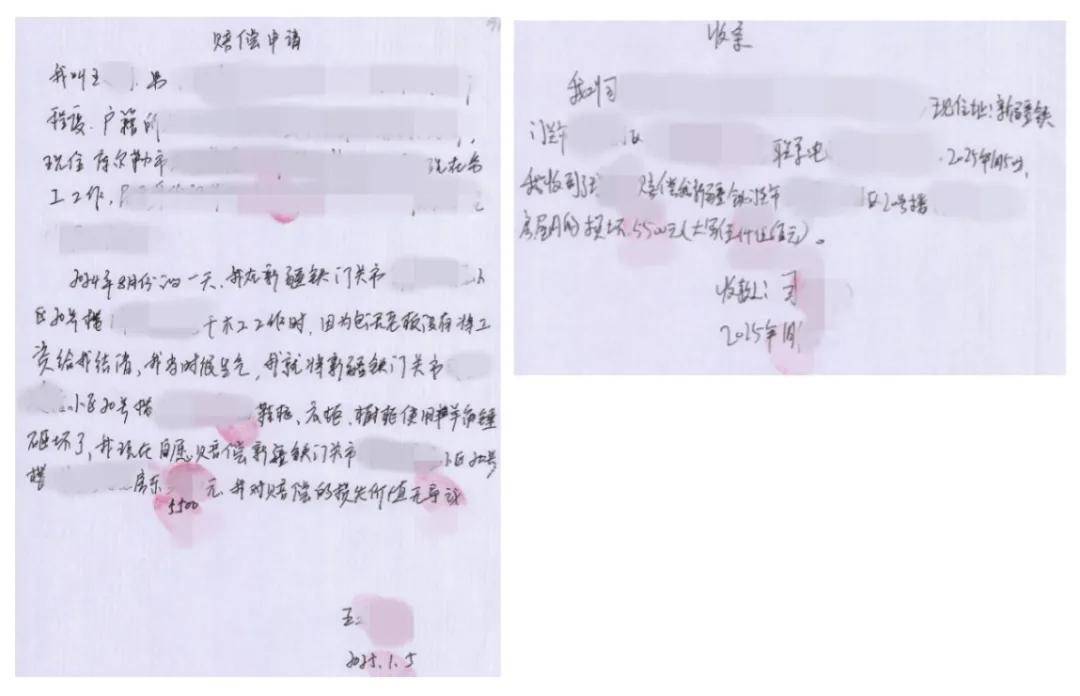 赔偿申请
我叫王 男
程度、户籍所
现住库尔勒市 现在务
工工作,
2024年8月份的一天,我在新疆铁门关市 小
区20号楼 干木工工作时,因为包工老板没有将工
资给我结清,我当时很生气,我就将新疆铁门关市
小区20号楼 鞋柜、衣柜、橱柜使用羊角锤
砸坏了,我现在自愿赔偿新疆铁门关市 小区20号
楼 房东 元,我对赔偿的损失价值无争议
5500
王
2025.1.5
收条
我叫司 现住址:新疆铁
门关市 区 联系电 2025年1月5日,
我收到了王 赔偿我新疆铁门关市 区20号楼
房屋内的损坏5500元(大写伍仟伍佰元)。
收款人:司
2025年1月